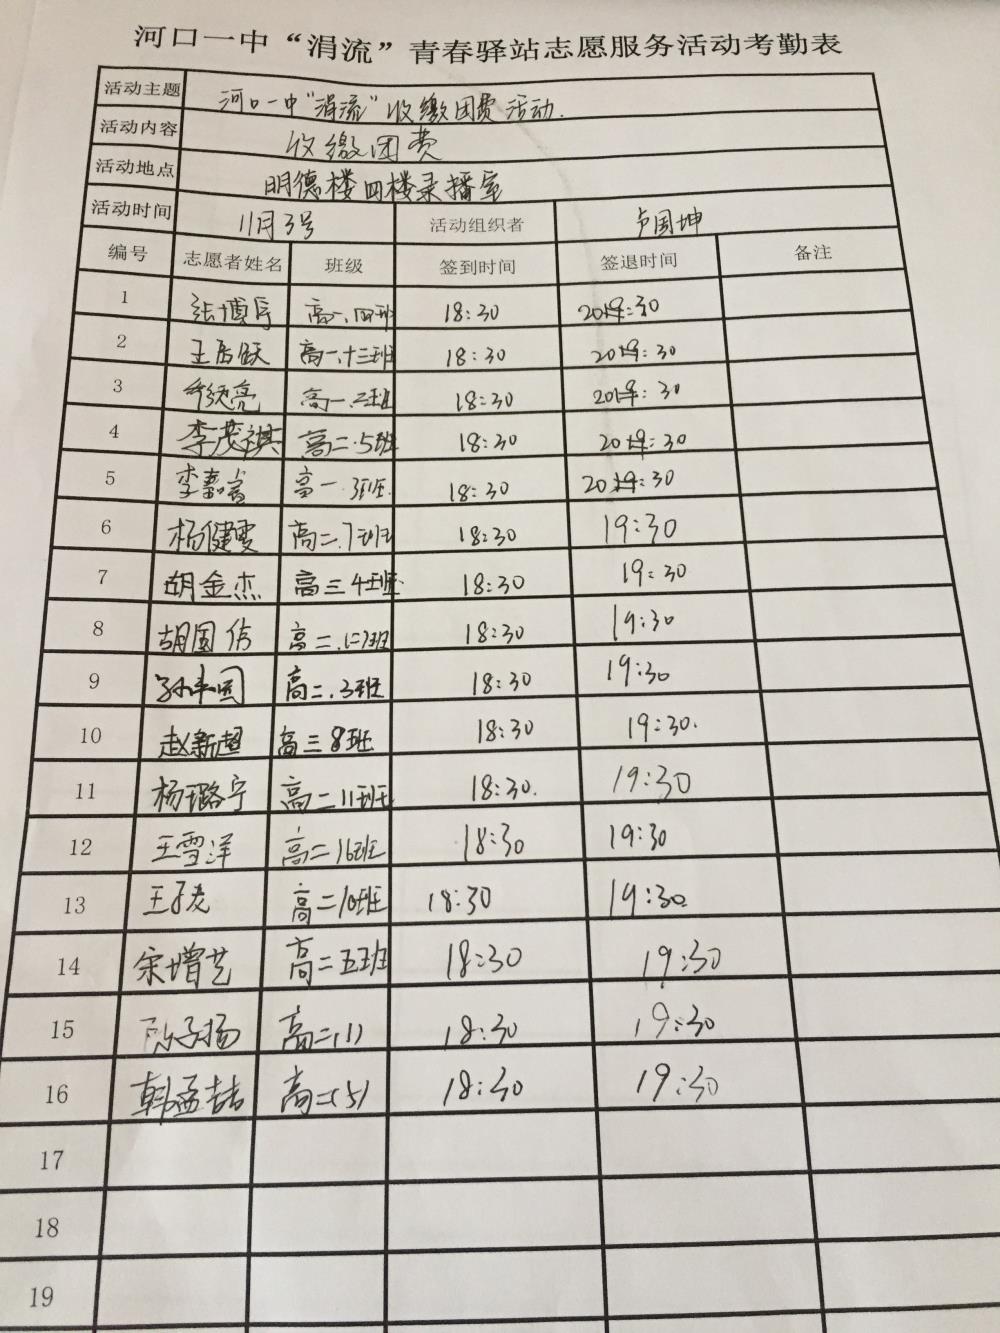 河口一中“涓流”青春驿站志愿服务活动考勤表
活动主题 河口一中“涓流”收缴团费活动.
活动内容 收缴团费
活动地点 明德楼四楼录播室
活动时间 11月3号 活动组织者 卢国坤
编号 志愿者姓名 班级 签到时间 签退时间 备注
1 张博 高一.四班 18:30 19:30
2 王 高一.十三班 18:30 19:30
3 亮 高一.2班 18:30 19:30
4 李茂祺 高二.5班 18:30 19:30
5 李嘉 高一.班 18:30 19:30
6 杨健雯 高二.7班 18:30 19:30
7 胡金杰 高三4班 18:30 19:30
8 胡国信 高二.班 18:30 19:30
9 孙 高二.3班 18:30 19:30
10 赵新超 高三8班 18:30 19:30.
11 杨璐宁 高二11班 18:30. 19:30
12 王雪洋 高二16班 18:30 19:30
13 王子 高二10班 18:30 19:30
14 宋增艺 高二五班 18:30 19:30
15 子扬 高二(1) 18:30 19:30
16 韩孟喆 高二(5) 18:30 19:30
17
18
19